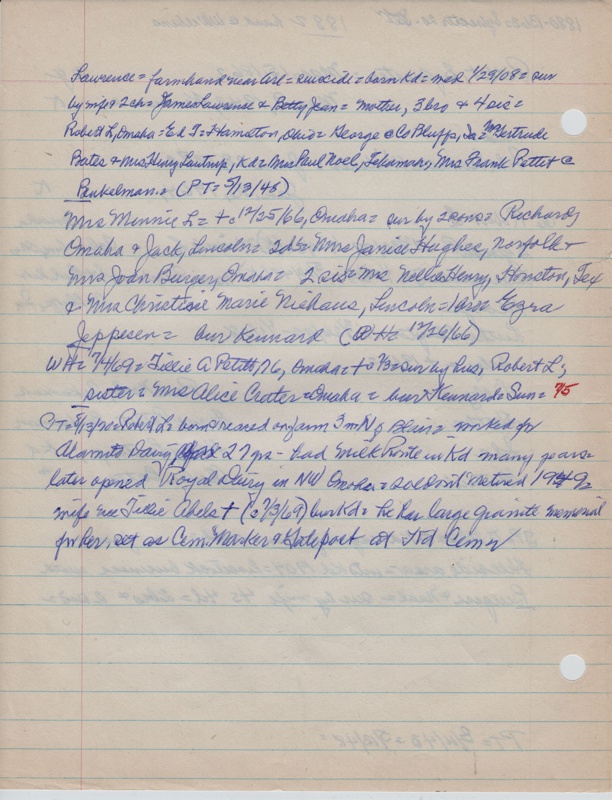 Lawrence = farmhand near Arl = suicide = born Kd = med 1/29/08 = sur
by wife & 2 ch = James Lawrence & Betty Jean = mother, 3 bro & 4 sis =
Robert L, Omaha = Ed T = Hamilton, Ohio = George = Co Bluffs, Mrs Gertrude
Bates & Mrs Henry Lautrup, Kd = Mrs Paul Noel, Tekamah, Mrs Frank Pettet
Benkelman. = (PT = 5/13/45)
Mrs Minnie L = + c 12/25/66, Omaha = sur by 2 sons = Richard,
Omaha & Jack, Lincoln = 2 ds = Mrs Janice Hughes, Norfolk &
Mrs Joan Burger, Omaha = 2 sis = Mrs Nellie Henry, Houston, Tex
& Mrs Christine Marie Niehaus, Lincoln = 1 bro = Ezra
Jeppesen = bur Kennard (WH = 12/26/66)
WH = 7/4/69 = Tillie A Petitt, 76, Omaha = + c 7/3 = sur by hus, Robert L;
sister = Mrs Alice Crater = Omaha = bur Kennard = Sun = 7/5
PT = 5/13/70 = Robert L = born & reared on farm 3 m N of Blair = worked for
Alamito Dairy 27 yrs = had milk route in Kd many years =
later opened Royal Dairy in NW Omaha = sold out & retired 1949
wife nee Tillie Abels + (c 7/3/69) bur Kd = he has large granite memorial
for her, set as Cem. Marker & Gatepost at Kd Cemey